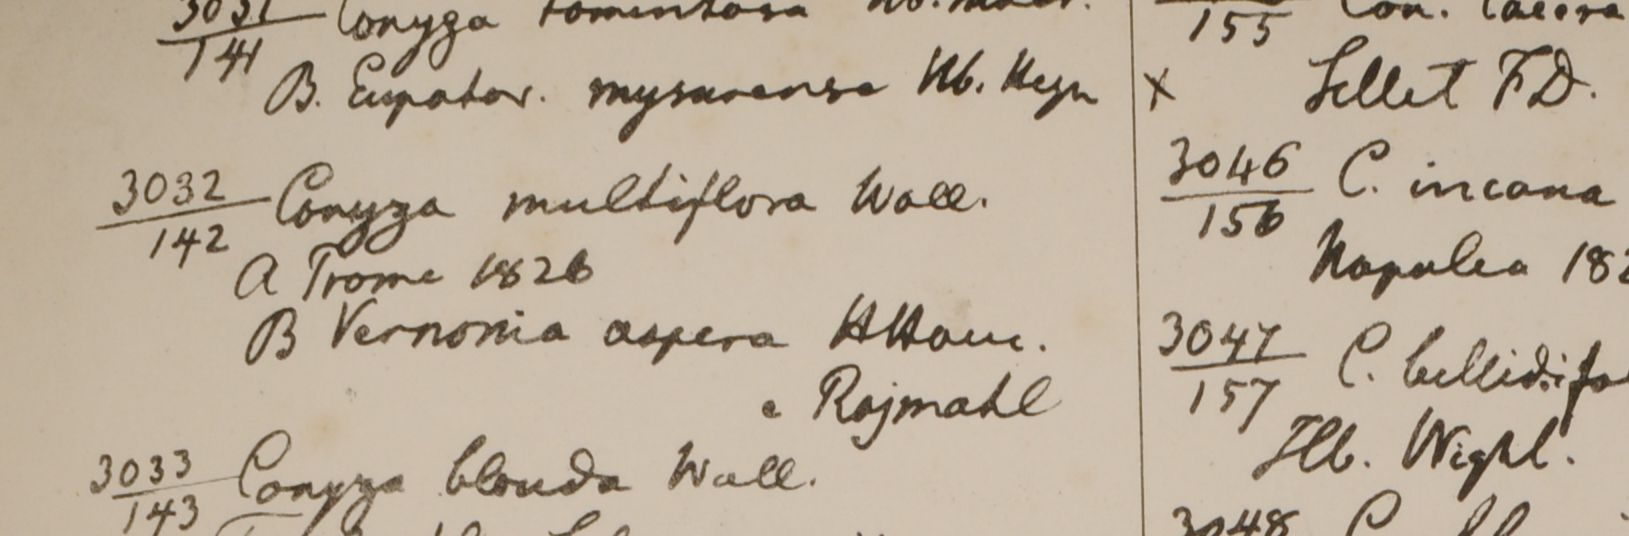 3031/141 Conyza tomentosa
B. Eupator. mysurense Hb. Heyn
3032/142 Conyza multiflora Wall.
A Prome 1826
B Vernonia aspera HHam.
e Rajmahl
3033/143 Conyza blanda Wall.
155 Con. lacera
x Sillet F.D.
3046/156 C. incana
Napalea 182
3047/157 C. bellidifo
Hb. Wight.
3048 C.